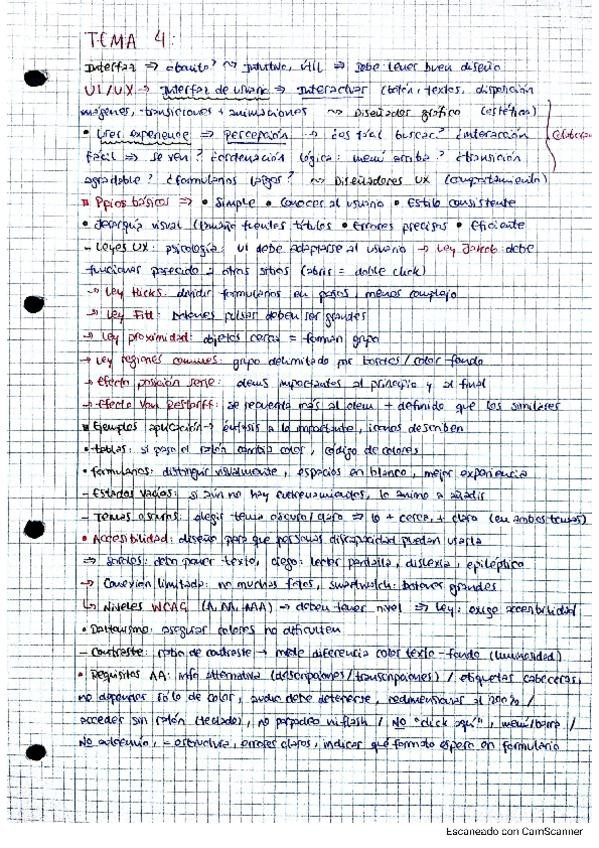 TEMA 4:
Interfaz ⇒ ¿bonito? ~> Intuitivo, útil ⇒ Debe tener buen diseño
UI/UX → Interfaz de usuario ⇒ Interactuar (botón, textos, disposición
imágenes, transiciones + animaciones ~> Diseñador gráfico (estética)
• User experience ⇒ percepción → ¿es fácil buscar? ¿interacción
fácil ⇒ se ven? ¿ordenación lógica: menú arriba? ¿transición
agradable? ¿formularios largos? ~> Diseñadores UX (comportamiento)
Ppios básicos ⇒ • Simple • Conocer al usuario • Estilo consistente
• Jerarquía visual (tamaño fuentes títulos • Errores precisos • Eficiente
- Leyes UX: psicología: UI debe adaptarse al usuario → Ley Jakob: debe
funcionar parecido a otros sitios (abrir = doble click)
→ Ley Hicks: dividir formularios en pasos, menos complejo
→ Ley Fitt: botones pulsar deben ser grandes
→ Ley proximidad: objetos cerca = forman grupo
→ Ley regiones comunes: grupo delimitado por bordes / color fondo
→ Efecto posición serie: items importantes al principio y al final
→ Efecto Von Restorff: se recuerda más al item + definido que los similares
Ejemplos aplicación → énfasis a lo importante, iconos describen
• tablas: si paso el ratón cambia color, código de colores
• Formularios: distinguir visualmente, espacios en blanco, mejor experiencia
- Estados vacíos: si aún no hay entrenamientos, lo animo a añadir
- Temas oscuros: elegir tema oscuro/claro ⇒ lo + cerca, + claro (en ambos temas)
• Accesibilidad: diseño para que personas discapacidad puedan usarla
⇒ sordos: debo poner texto, ciego: lector pantalla, dislexia, epiléptico
→ Conexión limitada: no muchas fotos, smartwatch: botones grandes
↳ Niveles WCAG (A, AA, AAA) → deben tener nivel ⇒ Ley: exige accesibilidad
• Daltonismo: asegurar colores no dificulten
- Contraste: ratio de contraste → mide diferencia color texto - fondo (luminosidad)
• Requisitos AA: info alternativa (descripciones/transcripciones) / etiquetas cabeceras,
no depender sólo de color, audio debe detenerse, redimensionar al 200% /
acceder sin ratón (teclado), no parpadeo ni flash / No "click aquí", menú/barra /
No autoenvío, = estructura, errores claros, indicar qué formato espero en formulario
Escaneado con CamScanner